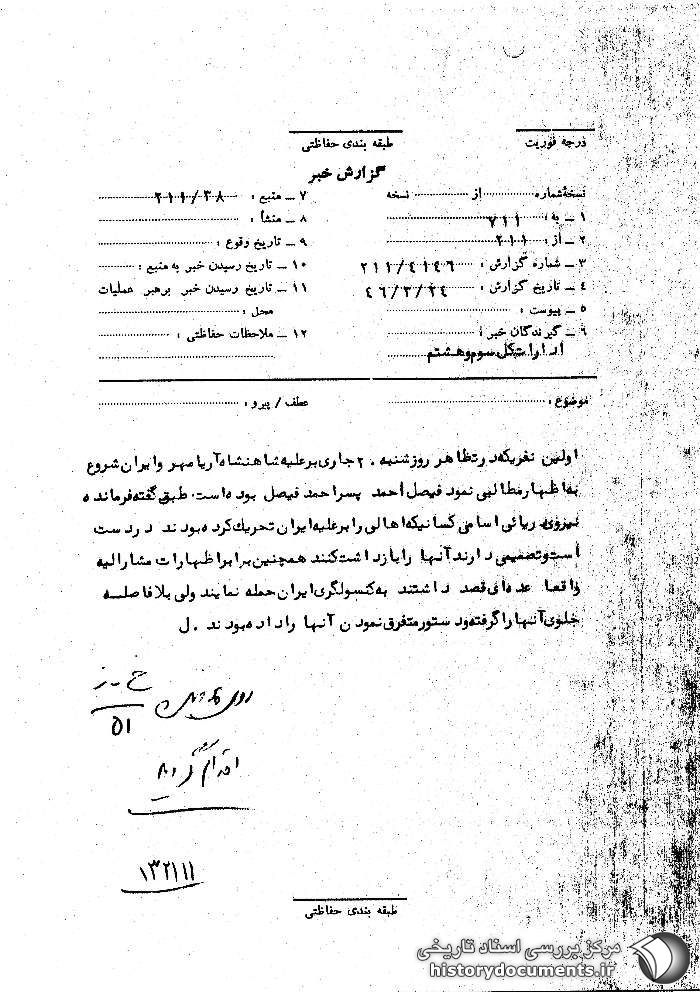 درجه فوریت
طبقه بندی حفاظتی
گزارش خبر
نسخه‌شماره ............ از ............ نسخه
۱ ـ به : ۷۱۱
۲ ـ از : ۲۱۱
۳ ـ شماره گزارش : ۲۱۱/۴۱۴۶
۴ ـ تاریخ گزارش : ۴۶/۳/۲۴
۵ ـ پیوست :
۶ ـ گیرندگان خبر :
ادارات‌کل سوم‌وهشتم
۷ ـ منبع : ۲۱۱/۳۸
۸ ـ منشأ :
۹ ـ تاریخ وقوع :
۱۰ ـ تاریخ رسیدن خبر به منبع :
۱۱ ـ تاریخ رسیدن خبر برهبر عملیات
محل :
۱۲ ـ ملاحظات حفاظتی :
موضوع :
عطف / پیرو :
اولین نفریکه در تظاهر روز شنبه ۲۰ جاری برعلیه شاهنشاه آریامهر و ایران شروع
به اظهار مطالبی نمود فیصل أحمد پسر احمد فیصل بوده است . طبق گفته فرمانده
نیروی دریائی اسامی کسانیکه اهالی را برعلیه ایران تحریک کرده بودند در دست
است و تصمیمی دارند آنها را بازداشت کنند همچنین برابر اظهارات مشارالیه
واقعا عده‌ای قصد داشتند به کنسولگری ایران حمله نمایند ولی بلافاصله
جلوی آنها را گرفته و دستور متفرق نمودن آنها را داده بودند . ل
۵۱
اقدام
۱۳۲۱۱۱
طبقه بندی حفاظتی
مرکز بررسی اسناد تاریخی
historydocuments.ir